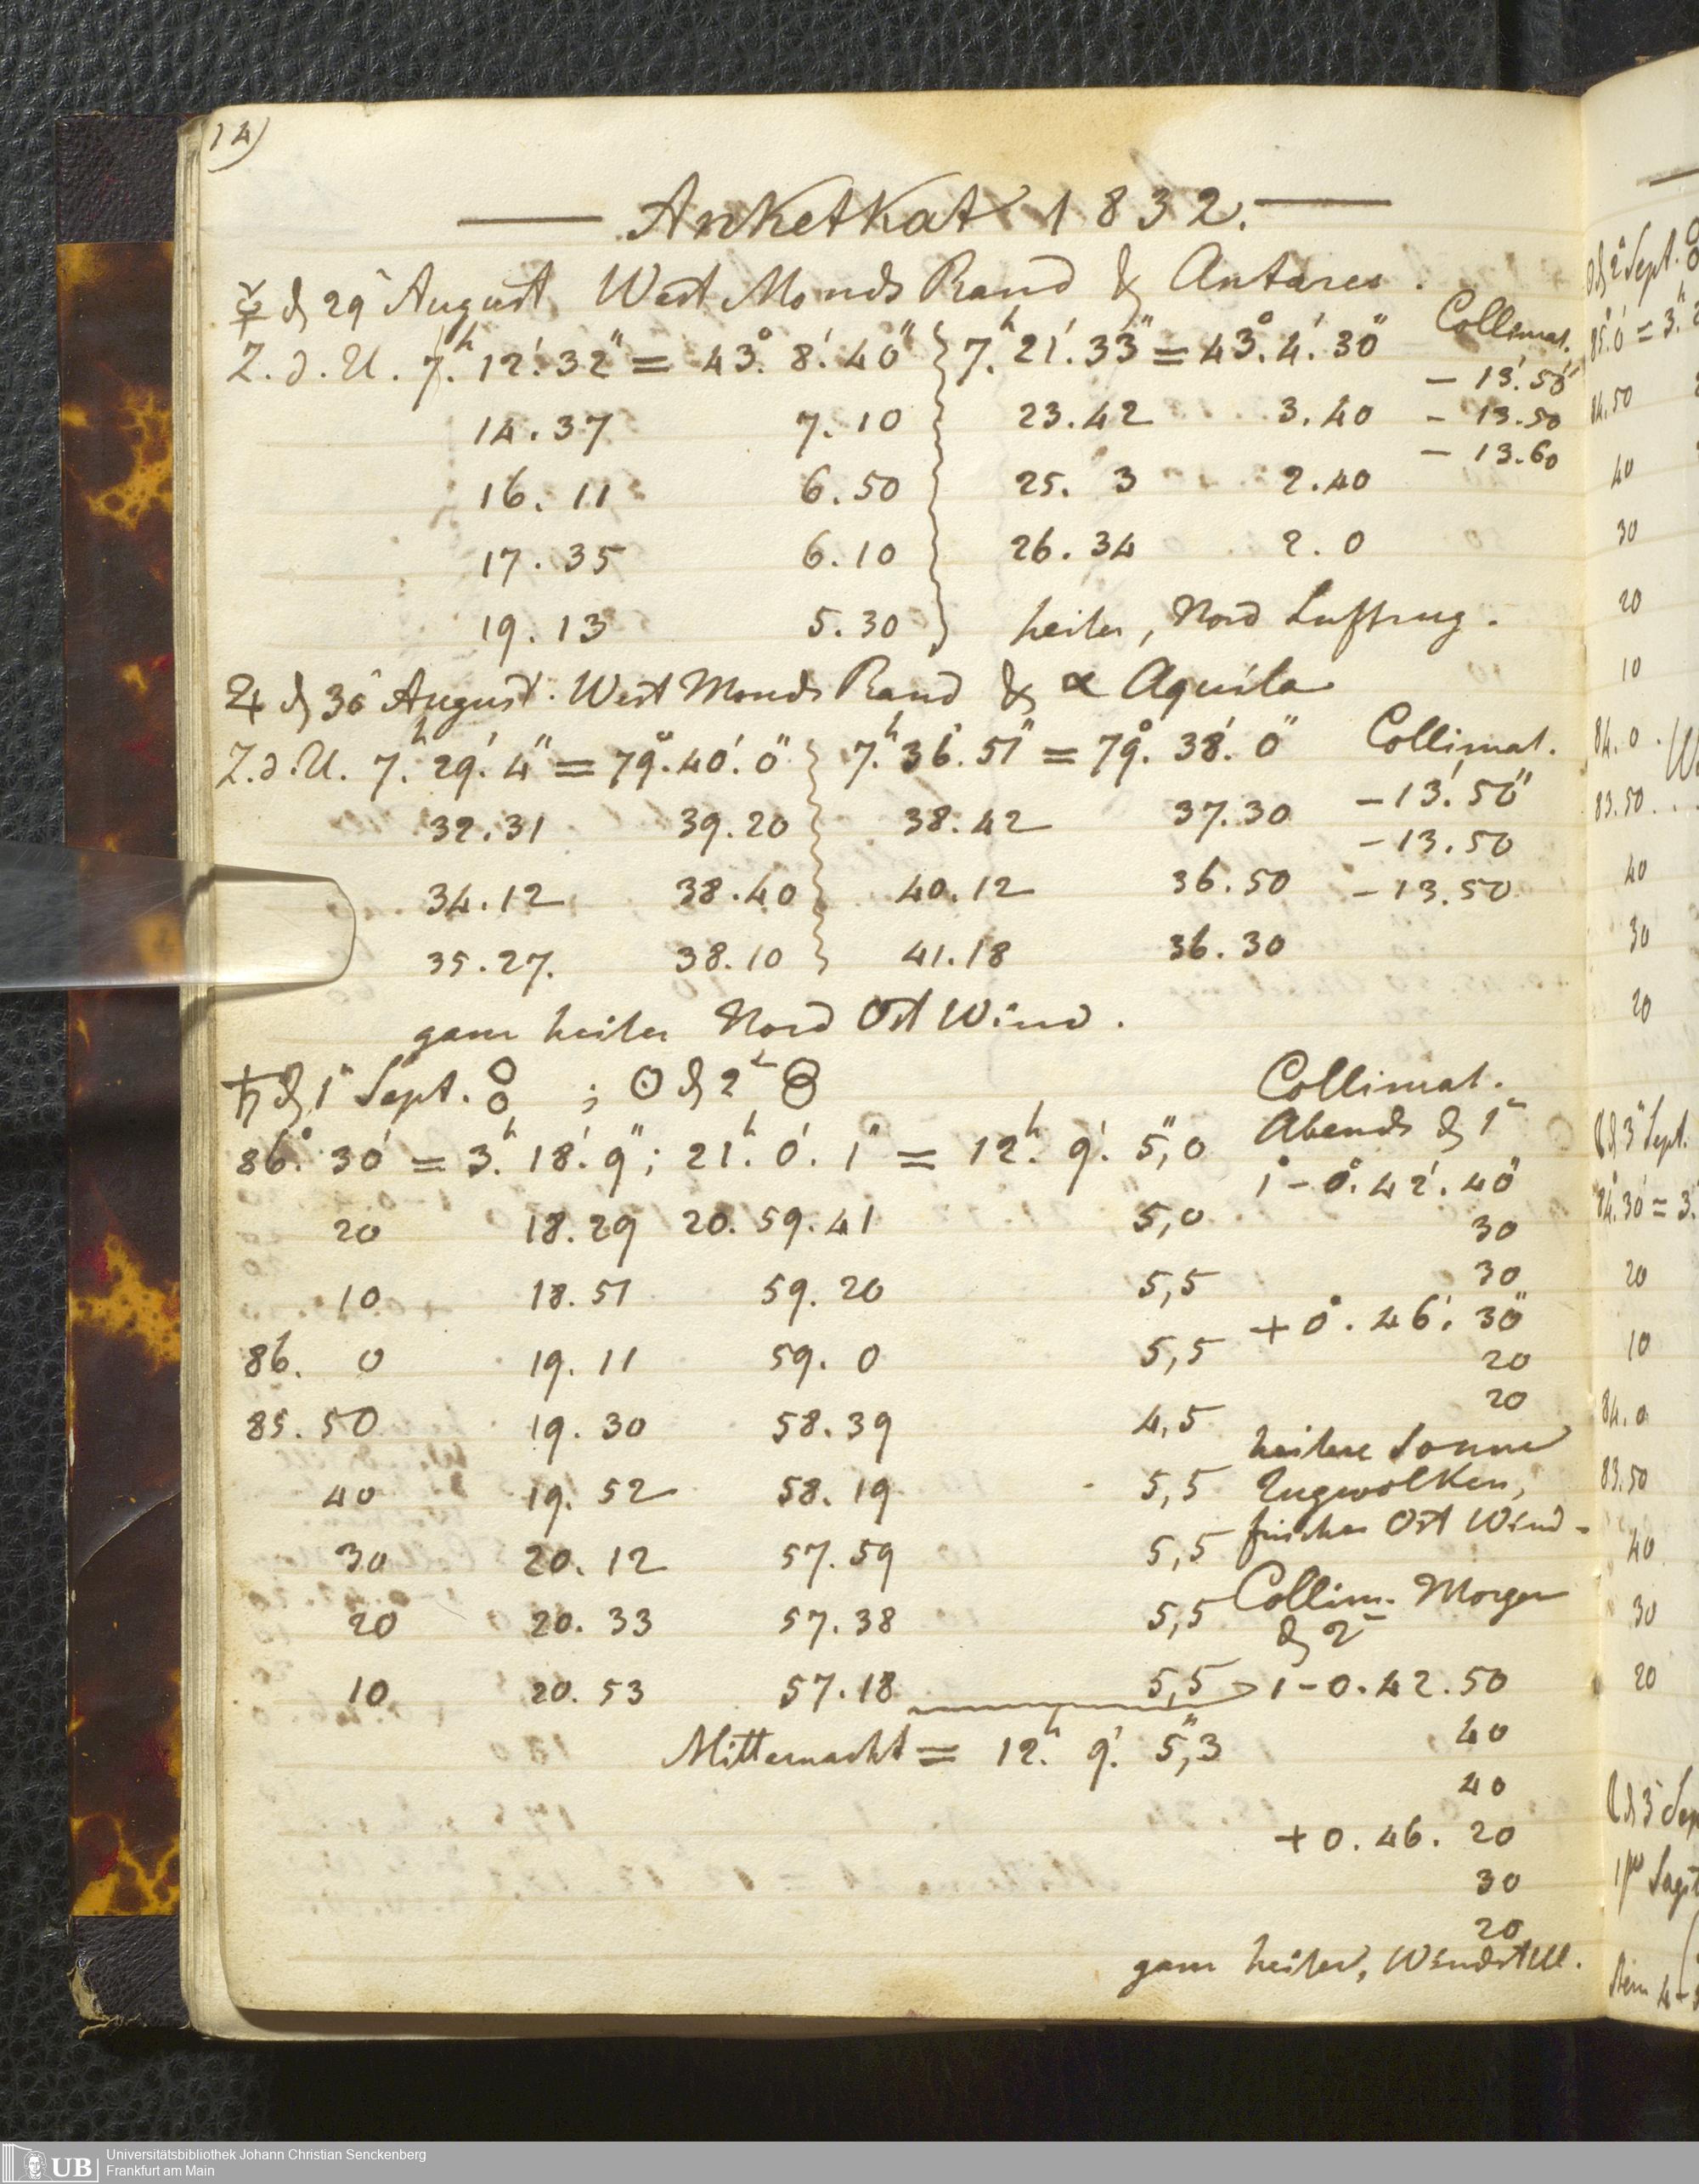 14)
Anketkat 1832.
☿ d 29t August West Monds Rand & Antares.
Collimat.
Z.d.U. 7.h 12.' 32" = 43.° 8.' 40" } 7.h 21.' 33" = 43.° 4.' 30"
- 13.' 50"
14.37 7.10 23.42 3.40 - 13.50
- 13.60
16.11 6.50 25. 3 2.40
17.35 6.10 26.34 2. 0
19.13 5.30 heiter, Nord Luftzug.
♃ d 30t August. West Monds Rand & α Aquila
Z.d.U. 7.h 29.' 4" = 79.° 40.' 0" } 7.h 36.' 51" = 79.° 38.' 0" Collimat.
- 13.' 50"
32.31 39.20 38.42 37.30 - 13.50
34.12 38.40 40.12 36.50 - 13.50
35.27. 38.10 41.18 36.30
ganz heiter Nord Ost Wind.
♄ d 1t Sept. ; ☉ d 2t
Collimat.
Abends d 1t
86.° 30' = 3.h 18.' 9"; 21.h 0.' 1" = 12.h 9.' 5",0
1° - 0.° 42.' 40"
20 18.29 20.59.41 5,0 30
10 18.51 59.20 5,5 30
+ 0.° 46.' 30"
86. 0 19.11 59. 0 5,5 20
20
85.50 19.30 58.39 4,5
heitere Sonne
40 19.52 58.19 5,5 Zugwolken,
30 20.12 57.59 5,5 frischer Ost Wind.
20 20.33 57.38 5,5 Collim. Morgen
d 2t
10 20.53 57.18 5,5 1 - 0.42.50
Mitternacht = 12.h 9.' 5",3 40
40
+ 0.46.20
30
20
ganz heiter, Windstill.
d 2t Sept.
85.° 0' = 3.h
84.50
40
30
20
10
84. 0
83.50
40
30
20
d 3t Sept.
84.° 30' = 3.
20
10
84. 0
83.50
40
30
20
UB
Universitätsbibliothek Johann Christian Senckenberg
Frankfurt am Main